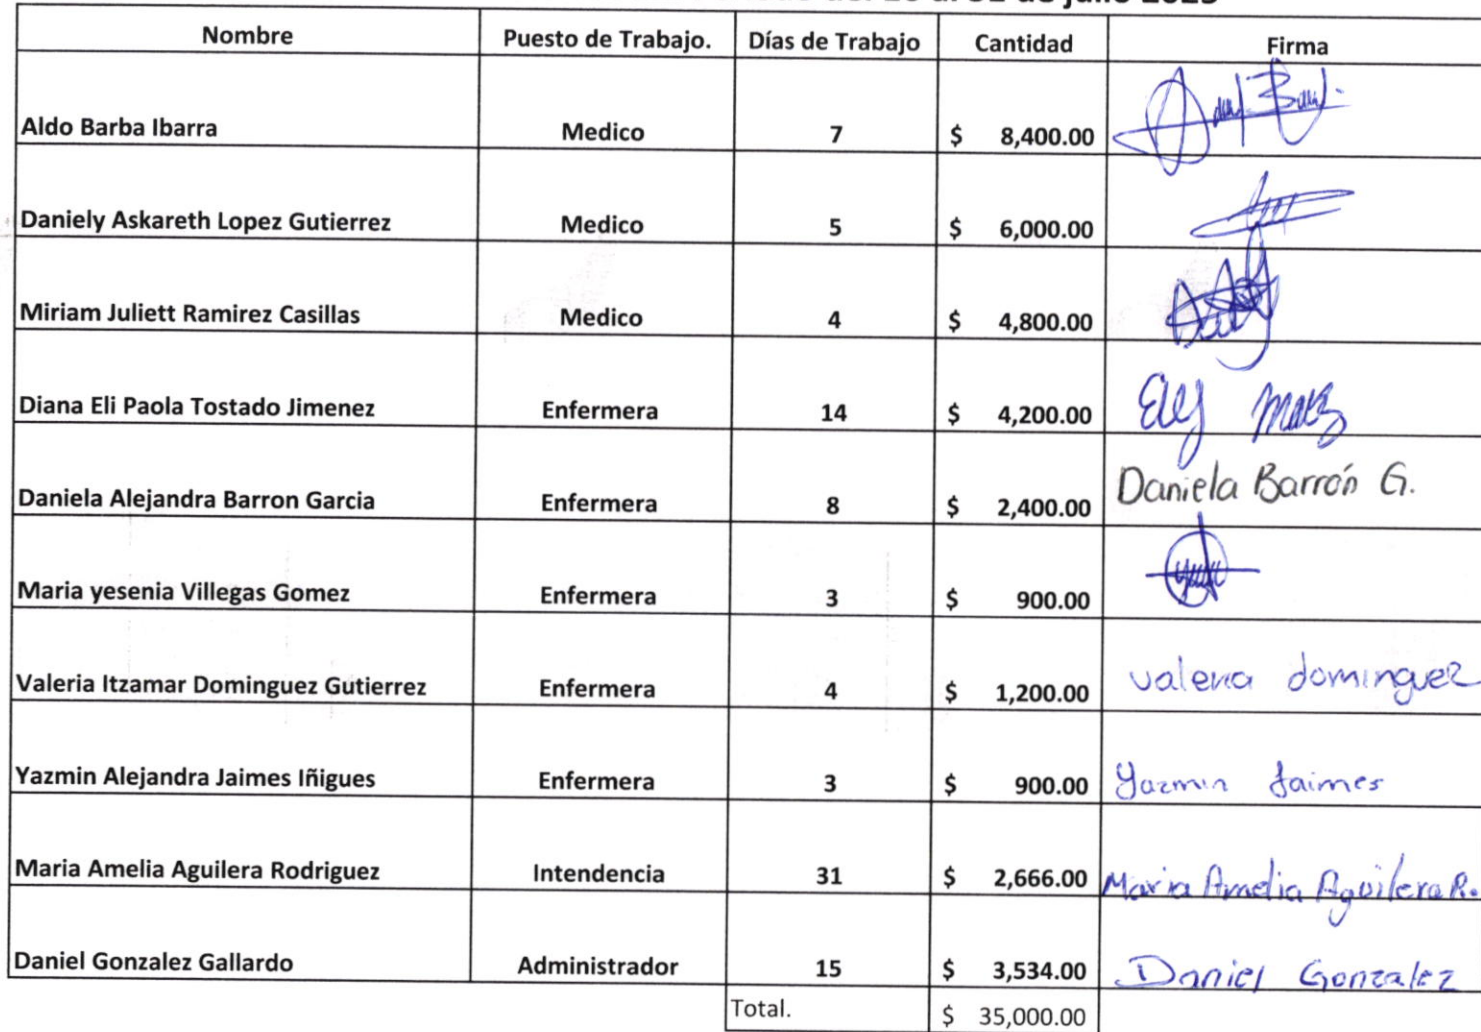 de julio 2023
Nombre Puesto de Trabajo. Días de Trabajo Cantidad Firma
Aldo Barba Ibarra Medico 7 $ 8,400.00
Daniely Askareth Lopez Gutierrez Medico 5 $ 6,000.00
Miriam Juliett Ramirez Casillas Medico 4 $ 4,800.00
Diana Eli Paola Tostado Jimenez Enfermera 14 $ 4,200.00
Daniela Alejandra Barron Garcia Enfermera 8 $ 2,400.00 Daniela Barrón G.
Maria yesenia Villegas Gomez Enfermera 3 $ 900.00
Valeria Itzamar Dominguez Gutierrez Enfermera 4 $ 1,200.00 valeria dominguez
Yazmin Alejandra Jaimes Iñigues Enfermera 3 $ 900.00 Yazmin Jaimes
Maria Amelia Aguilera Rodriguez Intendencia 31 $ 2,666.00 Maria Amelia Aguilera R.
Daniel Gonzalez Gallardo Administrador 15 $ 3,534.00 Daniel Gonzalez
Total. $ 35,000.00